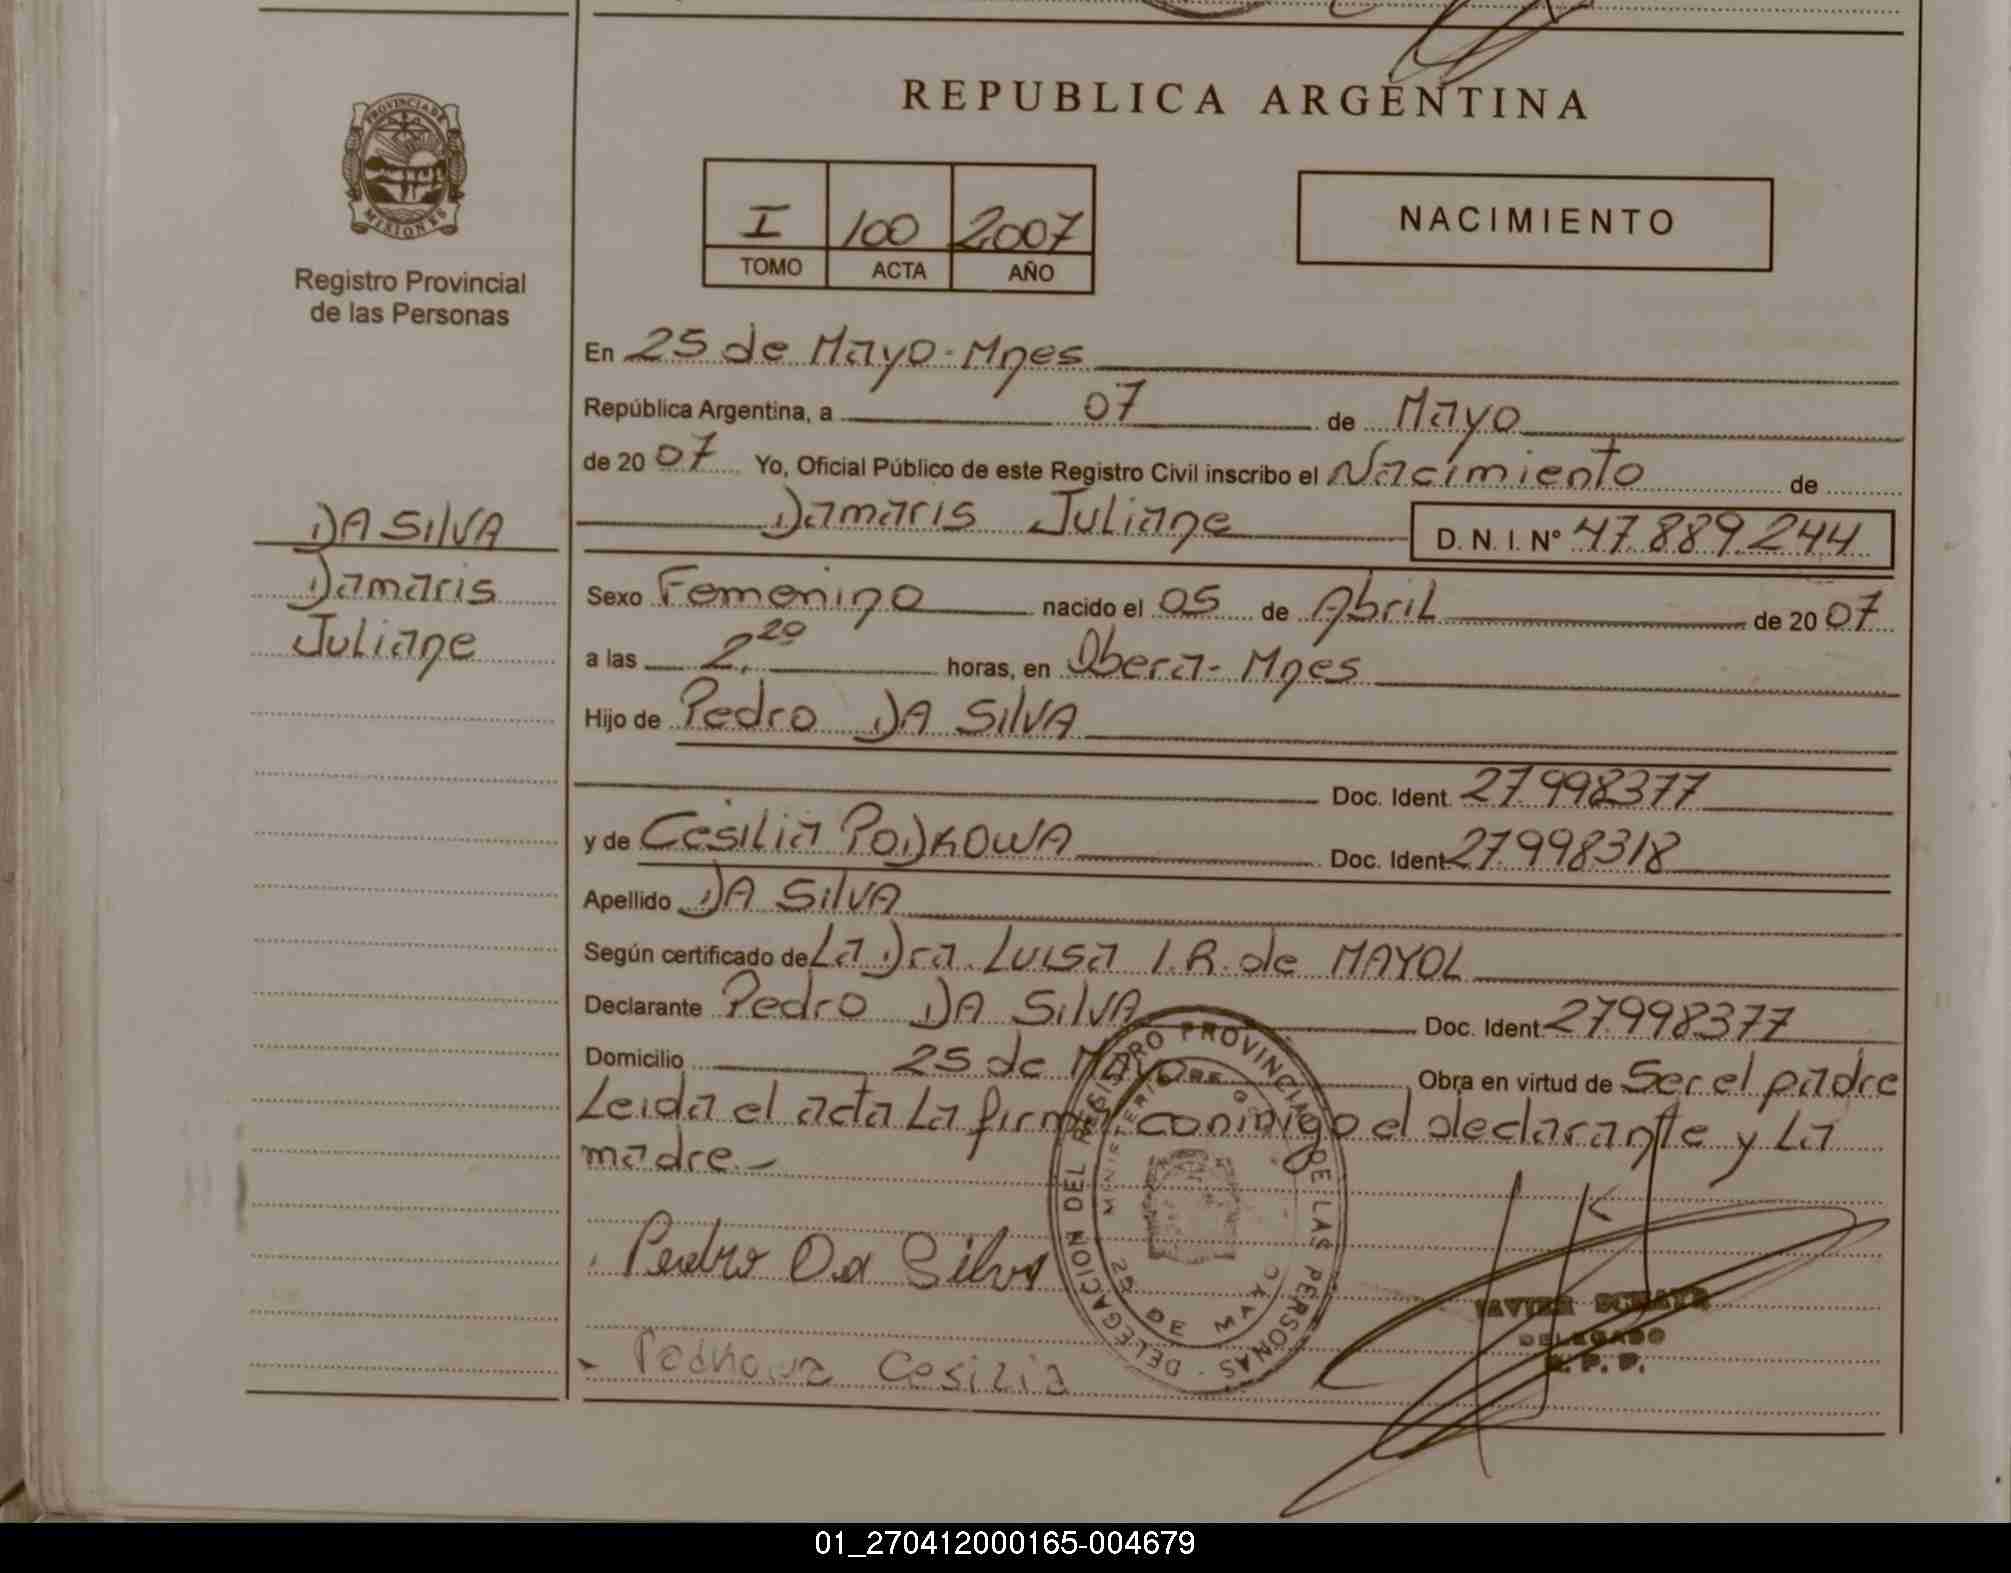 REPUBLICA ARGENTINA
PROVINCIA DE
MISIONES
Registro Provincial
de las Personas
I 100 2007
TOMO ACTA AÑO
NACIMIENTO
En 25 de Mayo-Mnes
República Argentina, a 07 de Mayo
de 20 07 Yo, Oficial Público de este Registro Civil inscribo el Nacimiento de
Damaris Juliane D. N. I. Nº 47.889.244
DA SILVA
Damaris
Juliane
Sexo Femenino nacido el 05 de Abril de 20 07
a las 2,20 horas, en Obera-Mnes
Hijo de Pedro DA SILVA
Doc. Ident. 27.998377
y de Cesilia PODKOWA Doc. Ident. 27.998318
Apellido DA SILVA
Según certificado de La Dra. Luisa I.R. de MAYOL
Declarante Pedro DA SILVA Doc. Ident. 27998377
Domicilio 25 de Mayo Obra en virtud de Ser el padre
Leida el acta La firma conmigo el declarante y La
madre.-
Pedro Da Silva
Podkowa Cesilia
DELEGACION DEL REGISTRO PROVINCIAL DE LAS PERSONAS
25 DE MAYO
JAVIER
DELEGADO
R. P. P.
01_270412000165-004679